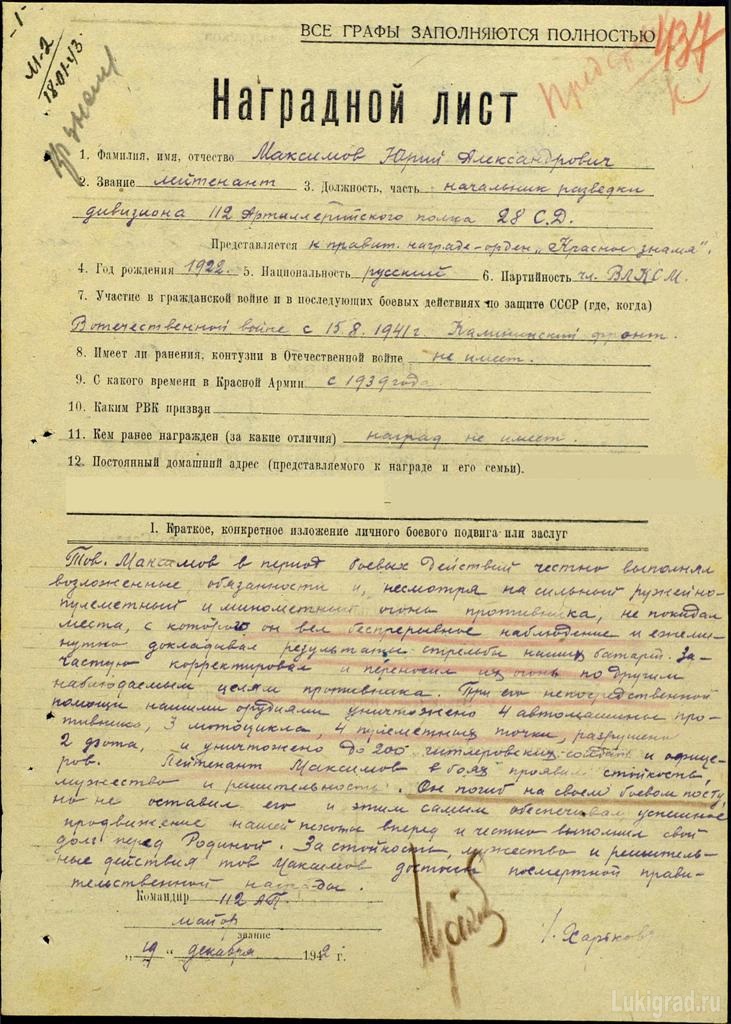 -1-
М-2
18.01.43
Кр знам
437
ВСЕ ГРАФЫ ЗАПОЛНЯЮТСЯ ПОЛНОСТЬЮ
Наградной лист
1. Фамилия, имя, отчество Максимов Юрий Александрович
2. Звание лейтенант 3. Должность, часть начальник разведки
дивизиона 112 Артиллерийского полка 28 С.Д.
Представляется к правит. награде-орден „Красное знамя".
4. Год рождения 1922. 5. Национальность русский 6. Партийность чл. ВЛКСМ.
7. Участие в гражданской войне и в последующих боевых действиях по защите СССР (где, когда)
В отечественной войне с 15.8.1941г. Калининский фронт.
8. Имеет ли ранения, контузии в Отечественной войне не имеет.
9. С какого времени в Красной Армии с 1939 года
10. Каким РВК призван
11. Кем ранее награжден (за какие отличия) наград не имеет.
12. Постоянный домашний адрес (представляемого к награде и его семьи).
I. Краткое, конкретное изложение личного боевого подвига или заслуг
Тов. Максимов в период боевых действий честно выполнял
возложенные обязанности и, несмотря на сильный ружейно-
пулеметный и минометный огонь противника, не покидал
места, с которого он вел беспрерывное наблюдение и ежеми-
нутно докладывал результаты стрельбы наших батарей. За-
частую корректировал и переносил их огонь по другим
наблюдаемым целям противника. При его непосредственной
помощи нашими орудиями уничтожено 4 автомашины про-
тивника, 3 мотоцикла, 4 пулеметных точки, разрушено
2 дзота, и уничтожено до 200 гитлеровских солдат и офице-
ров. Лейтенант Максимов в боях проявил стойкость,
мужество и решительность. Он погиб на своем боевом посту,
но не оставил его и этим самым обеспечивал успешное
продвижение нашей пехоты вперед и честно выполнил свой
долг перед Родиной. За стойкость, мужество и решитель-
ные действия тов Максимов достоин посмертной прави-
тельственной награды.
Командир 112 АП.
майор
звание
„19" декабря 1942 г.
Lukigrad.ru